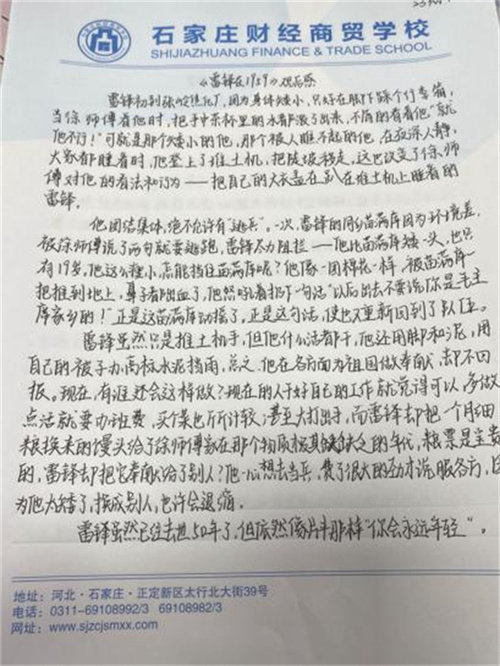 石家庄财经商贸学校
SHIJIAZHUANG FINANCE & TRADE SCHOOL
《雷锋在1959》观后感
雷锋初到弓长岭焦化厂，因为身体矮小，只好在脚下踩个行李箱，
当徐师傅看他时，把手中茶杯里的水都泼了出来，不屑的看着他"就
他不行！"可就是那个矮小的他，那个被人瞧不起的他，在夜深人静，
大家都睡着时，他登上了推土机，把陡坡移走，这也改变了徐师
傅对他的看法和行为——把自己的大衣盖在趴在推土机上睡着的
雷锋。
他团结集体，绝不允许有"逃兵"。一次，雷锋的同乡苗满库因为环境差，
被徐师傅说了两句就要逃跑，雷锋尽力阻拦——他比苗满库矮一头，也只
有19岁，他这么瘦小怎能挡住苗满库呢？他像一团棉花一样，被苗满库一
把推到地上，鼻子都出血了，他然吼着扔下一句话"以后出去不要说你是毛主
席家乡的！"正是这苗满库动摇了，正是这句话，使他重新回到了队伍。
雷锋虽然只是推土机手，但他什么活都干，他还用脚和泥，用
自己的被子为高标水泥挡雨，总之，他在各方面为祖国做奉献，却不回
报。现在，有谁还会这样做？现在的人干好自己的工作就觉得可以，多做
点活就要加班费，买个菜也斤斤计较，甚至大打出手，而雷锋却把一个月细
粮换来的馒头给了徐师傅家，在那个物质极其缺乏的年代，粮票是宝贵
的，雷锋却把它奉献给了别人？他一心想去当兵，费了很大的劲才说服各方，因
为他太矮了，换成别人，也许会退缩。
雷锋虽然已经去世50年了，但依然像片中那样"你会永远年轻"。
地址：河北·石家庄·正定新区太行北大街39号
电话：0311-69108992/3 69108982/3
网址：www.sjzcjsmxx.com